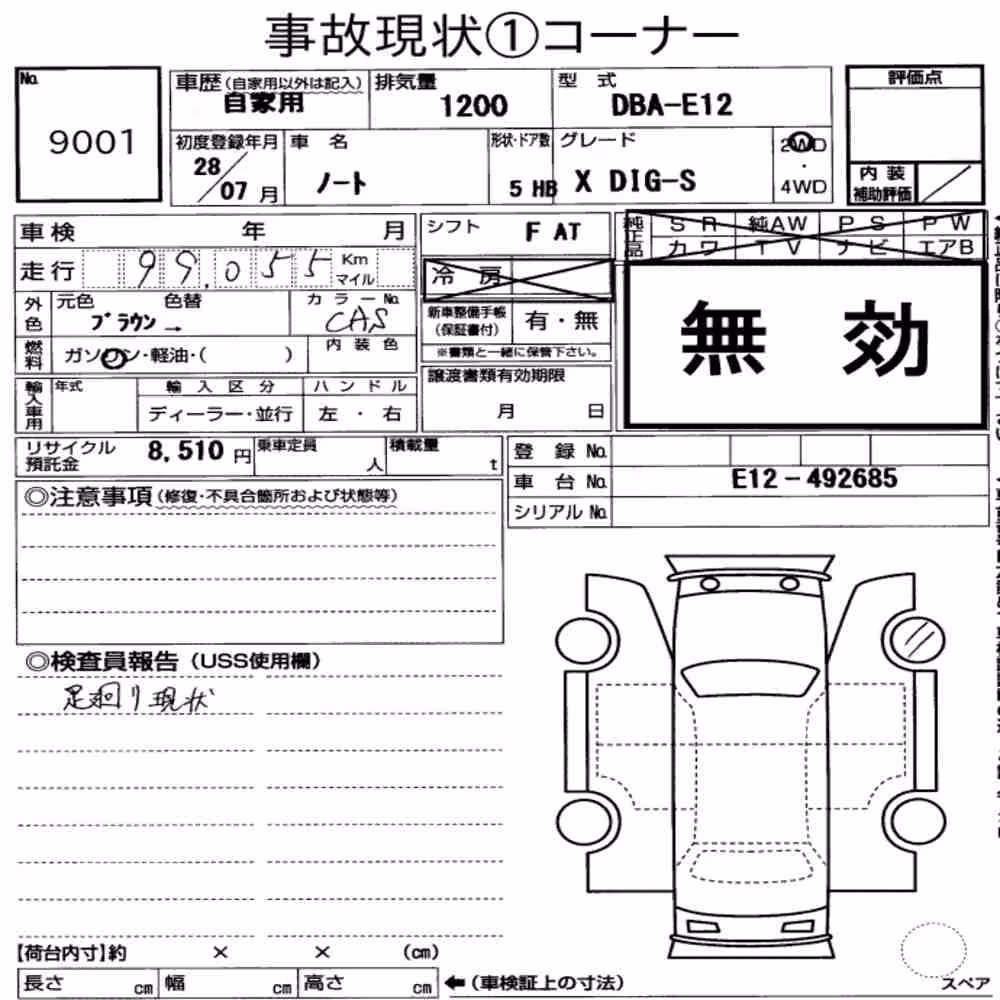 事故現状①コーナー
No.
9001
車歴(自家用以外は記入)
自家用
排気量
1200
型 式
DBA-E12
評価点
初度登録年月
28/07月
車 名
ノート
形状・ドア数
5 HB
グレード
X DIG-S
2WD
・
4WD
内 装
補助評価
車検 年 月
走行 99,055 Km
マイル
シフト
F AT
純正品
SR 純AW PS PW
カワ TV ナビ エアB
冷 房
外色
元色 色替
ブラウン →
カラーNo.
CAS
新車整備手帳
(保証書付)
有・無
※書類と一緒に保管下さい。
無 効
燃料
ガソリン・軽油・( )
内装色
輸入車用
年式
輸入区分
ディーラー・並行
ハンドル
左・右
譲渡書類有効期限
月 日
リサイクル
預託金
8,510 円
乗車定員
人
積載量
t
登 録 No.
車 台 No. E12-492685
シリアル No.
◎注意事項(修復・不具合箇所および状態等)
◎検査員報告(USS使用欄)
足廻り現状
【荷台内寸】約 × × (cm)
長さ cm 幅 cm 高さ cm
←(車検証上の寸法)
スペア